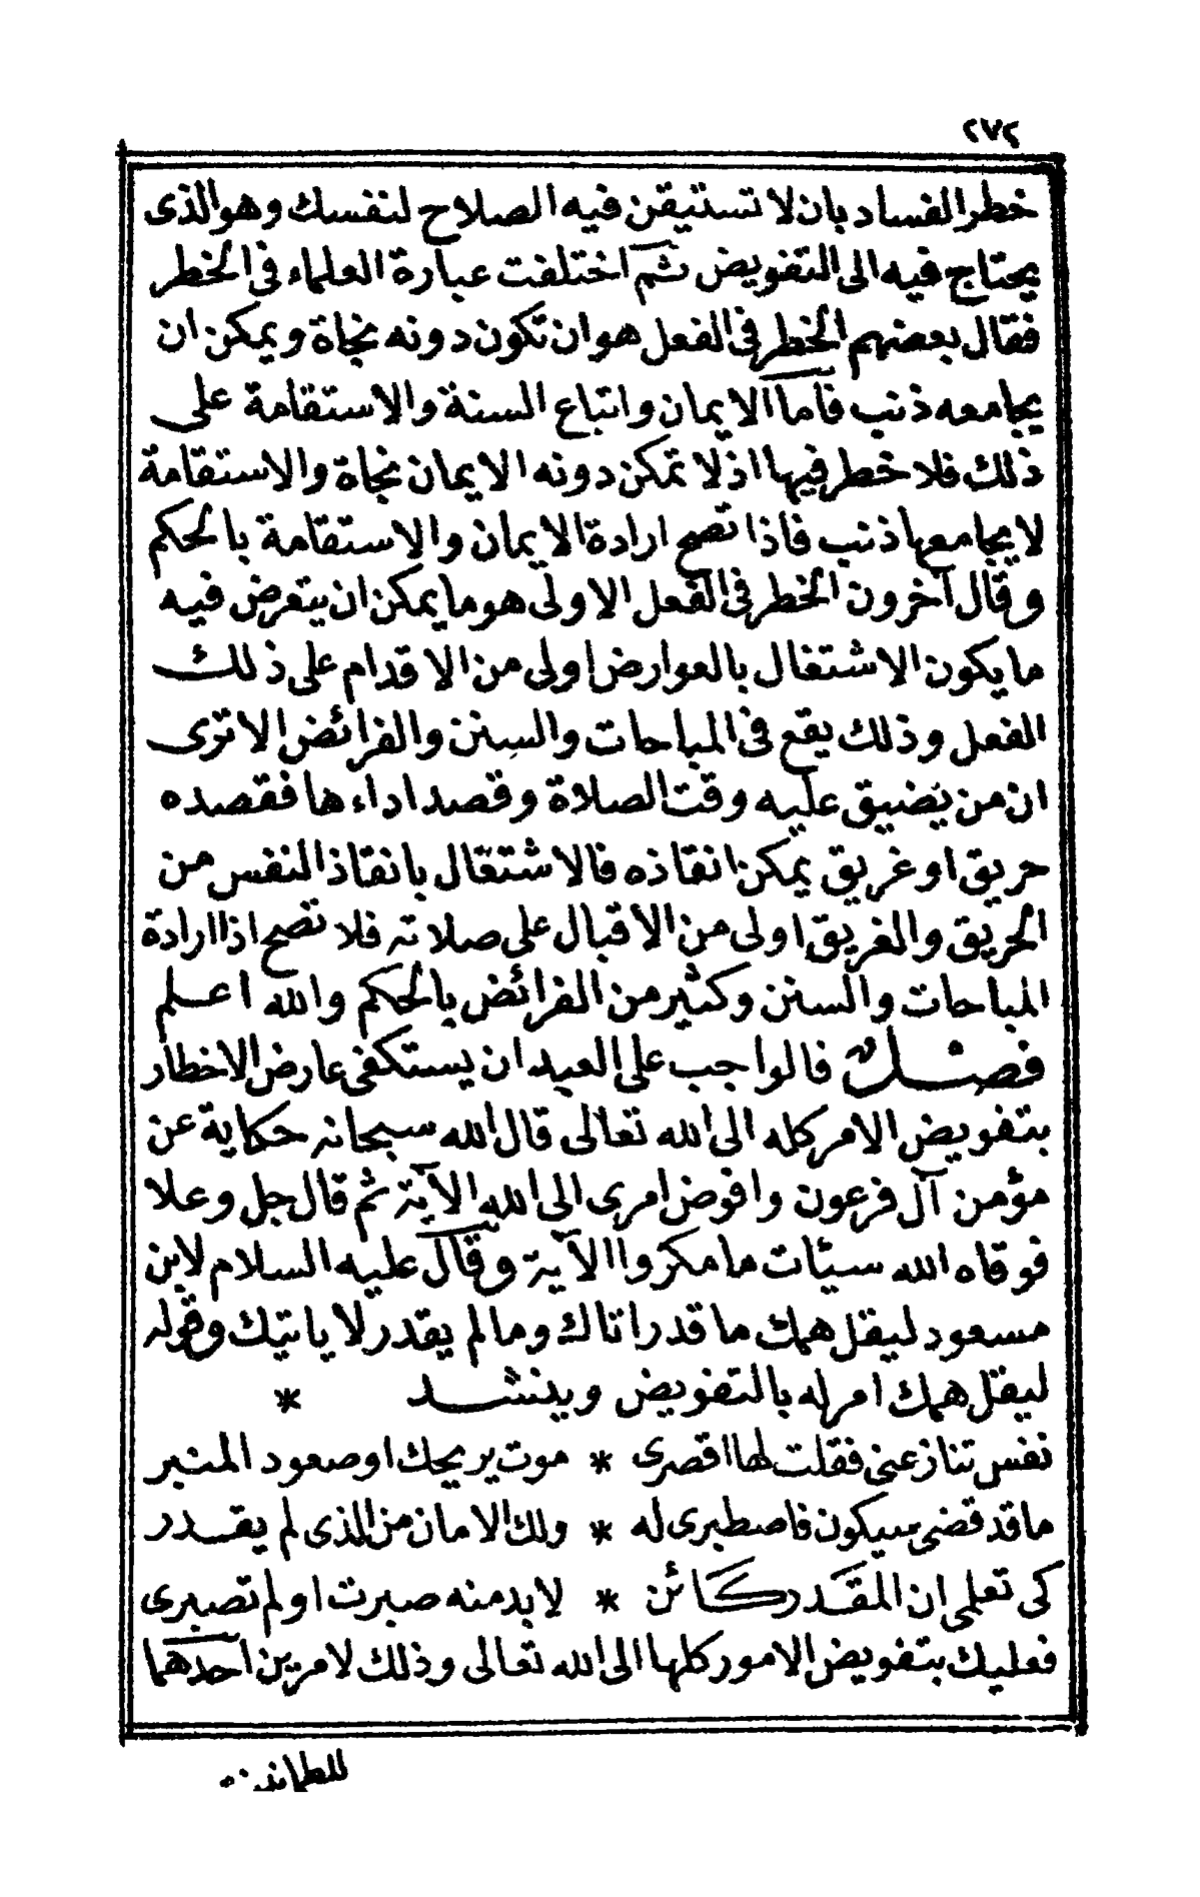 ٢٧٢
خطر الفساد بان لا تستيقن فيه الصلاح لنفسك وهو الذى
يحتاج فيه الى التفويض ثم اختلفت عبارة العلماء فى الخطر
فقال بعضهم الخطر فى الفعل هو ان تكون دونه نجاة ويمكن ان
يجامعه ذنب فاما الايمان واتباع السنة والاستقامة على
ذلك فلا خطر فيها اذ لا تمكن دونه الايمان نجاة والاستقامة
لا يجامعها ذنب فاذا تصح ارادة الايمان والاستقامة بالحكم
وقال آخرون الخطر فى الفعل الاولى هو ما يمكن ان يتعرض فيه
ما يكون الاشتغال بالعوارض اولى من الاقدام على ذلك
الفعل وذلك يقع فى المباحات والسنن والفرائض الا ترى
ان من يضيق عليه وقت الصلاة وقصد اداءها فقصده
حريق او غريق يمكن انقاذه فالاشتغال بانقاذ النفس من
الحريق والغريق اولى من الاقبال على صلاته فلا تصح اذا ارادة
المباحات والسنن وكثير من الفرائض بالحكم والله اعلم
فصل فالواجب على العبد ان يستكفى عارض الاخطار
بتفويض الامر كله الى الله تعالى قال الله سبحانه حكاية عن
مؤمن آل فرعون وافوض امرى الى الله الآية ثم قال جل وعلا
فوقاه الله سيئات ما مكروا الآية وقال عليه السلام لابن
مسعود ليقل همك ما قدر اتاك وما لم يقدر لا ياتيك وقوله
ليقل همك امر له بالتفويض وينشد *
نفس تنازعنى فقلت لها اقصرى * موت يريحك او صعود المنبر
ما قد قضى سيكون فاصطبرى له * ولك الامان من الذى لم يقدر
كى تعلمى ان المقدر كائن * لا بد منه صبرت او لم تصبرى
فعليك بتفويض الامور كلها الى الله تعالى وذلك لامرين احدهما